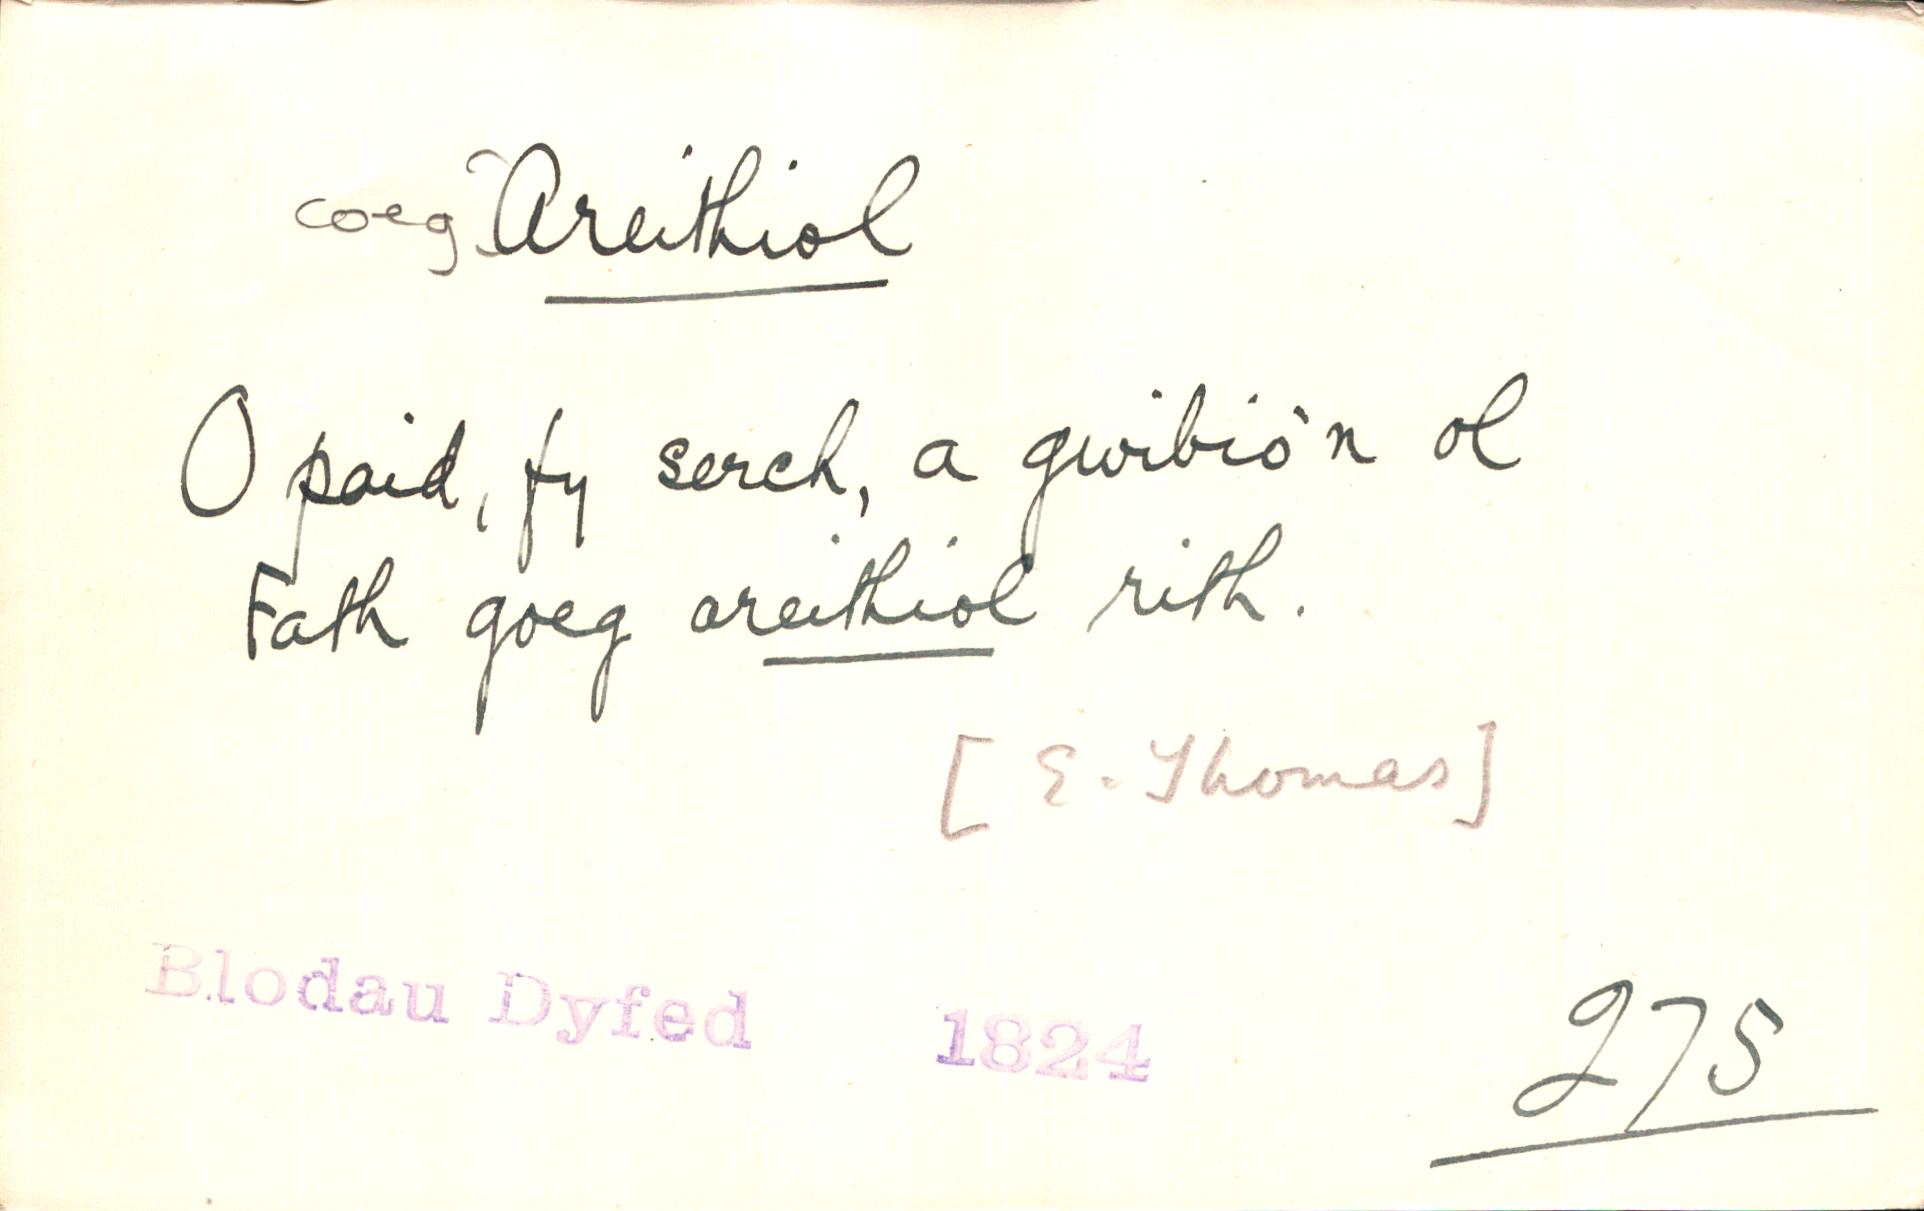 coeg Areithiol
O paid, fy serch, a gwibio'n ol
Fath goeg areithiol rith.
[E. Thomas]
Blodau Dyfed 1824
275